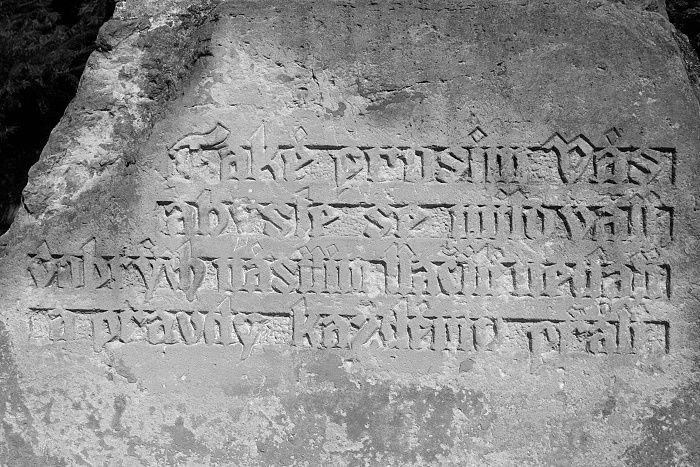 Také prosím Vás
abyste se milovali
dobrých násilím tlačiti nedali
a pravdy každému přáli